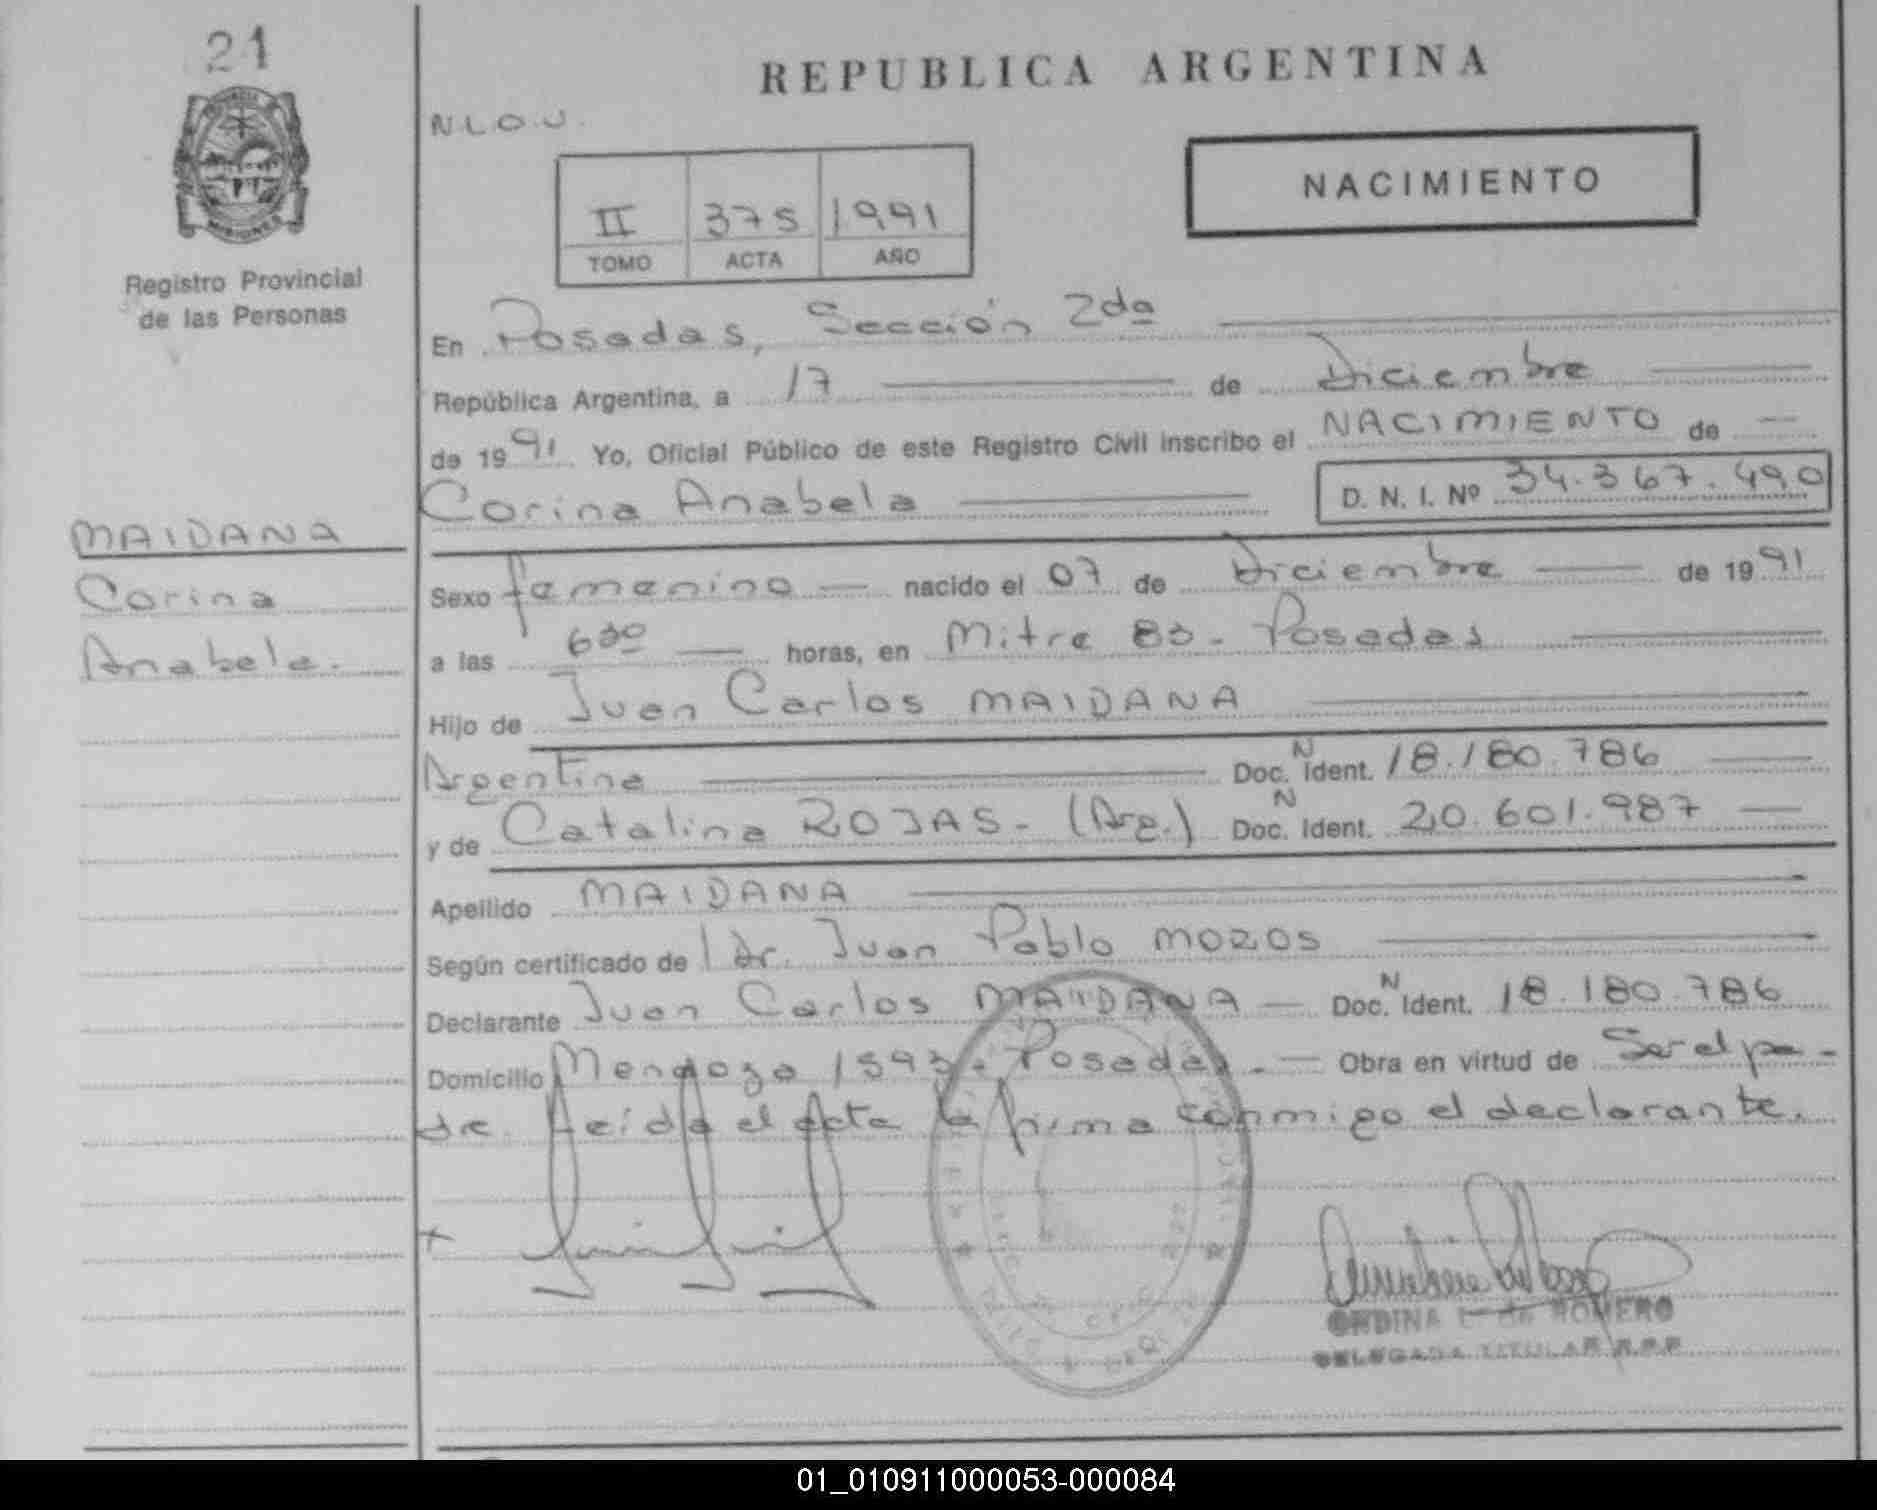 21
Registro Provincial
de las Personas
MAIDANA
Corina
Anabela.
REPUBLICA ARGENTINA
N.L.O.U.
NACIMIENTO
II 375 1991
TOMO ACTA AÑO
En Posadas, Sección 2da
República Argentina, a 17 de Diciembre
de 1991 Yo, Oficial Público de este Registro Civil inscribo el NACIMIENTO de
Corina Anabela D. N. I. Nº 34.367.490
Sexo femenino nacido el 07 de Diciembre de 1991
a las 630 horas, en Mitre 83 - Posadas
Hijo de Juan Carlos MAIDANA
Argentina Doc. N Ident. 18.180.786
y de Catalina ROJAS - (Arg.) Doc. N Ident. 20.601.987
Apellido MAIDANA
Según certificado de Dr. Juan Pablo MOZOS
Declarante Juan Carlos MAIDANA Doc. N Ident. 18.180.786
Domicilio Mendoza 1593 - Posadas. Obra en virtud de Ser el pa-
dre. Leída el acta la firma conmigo el declarante.
de ROMERO
DELEGADA TITULAR R.P.P.
01_010911000053-000084